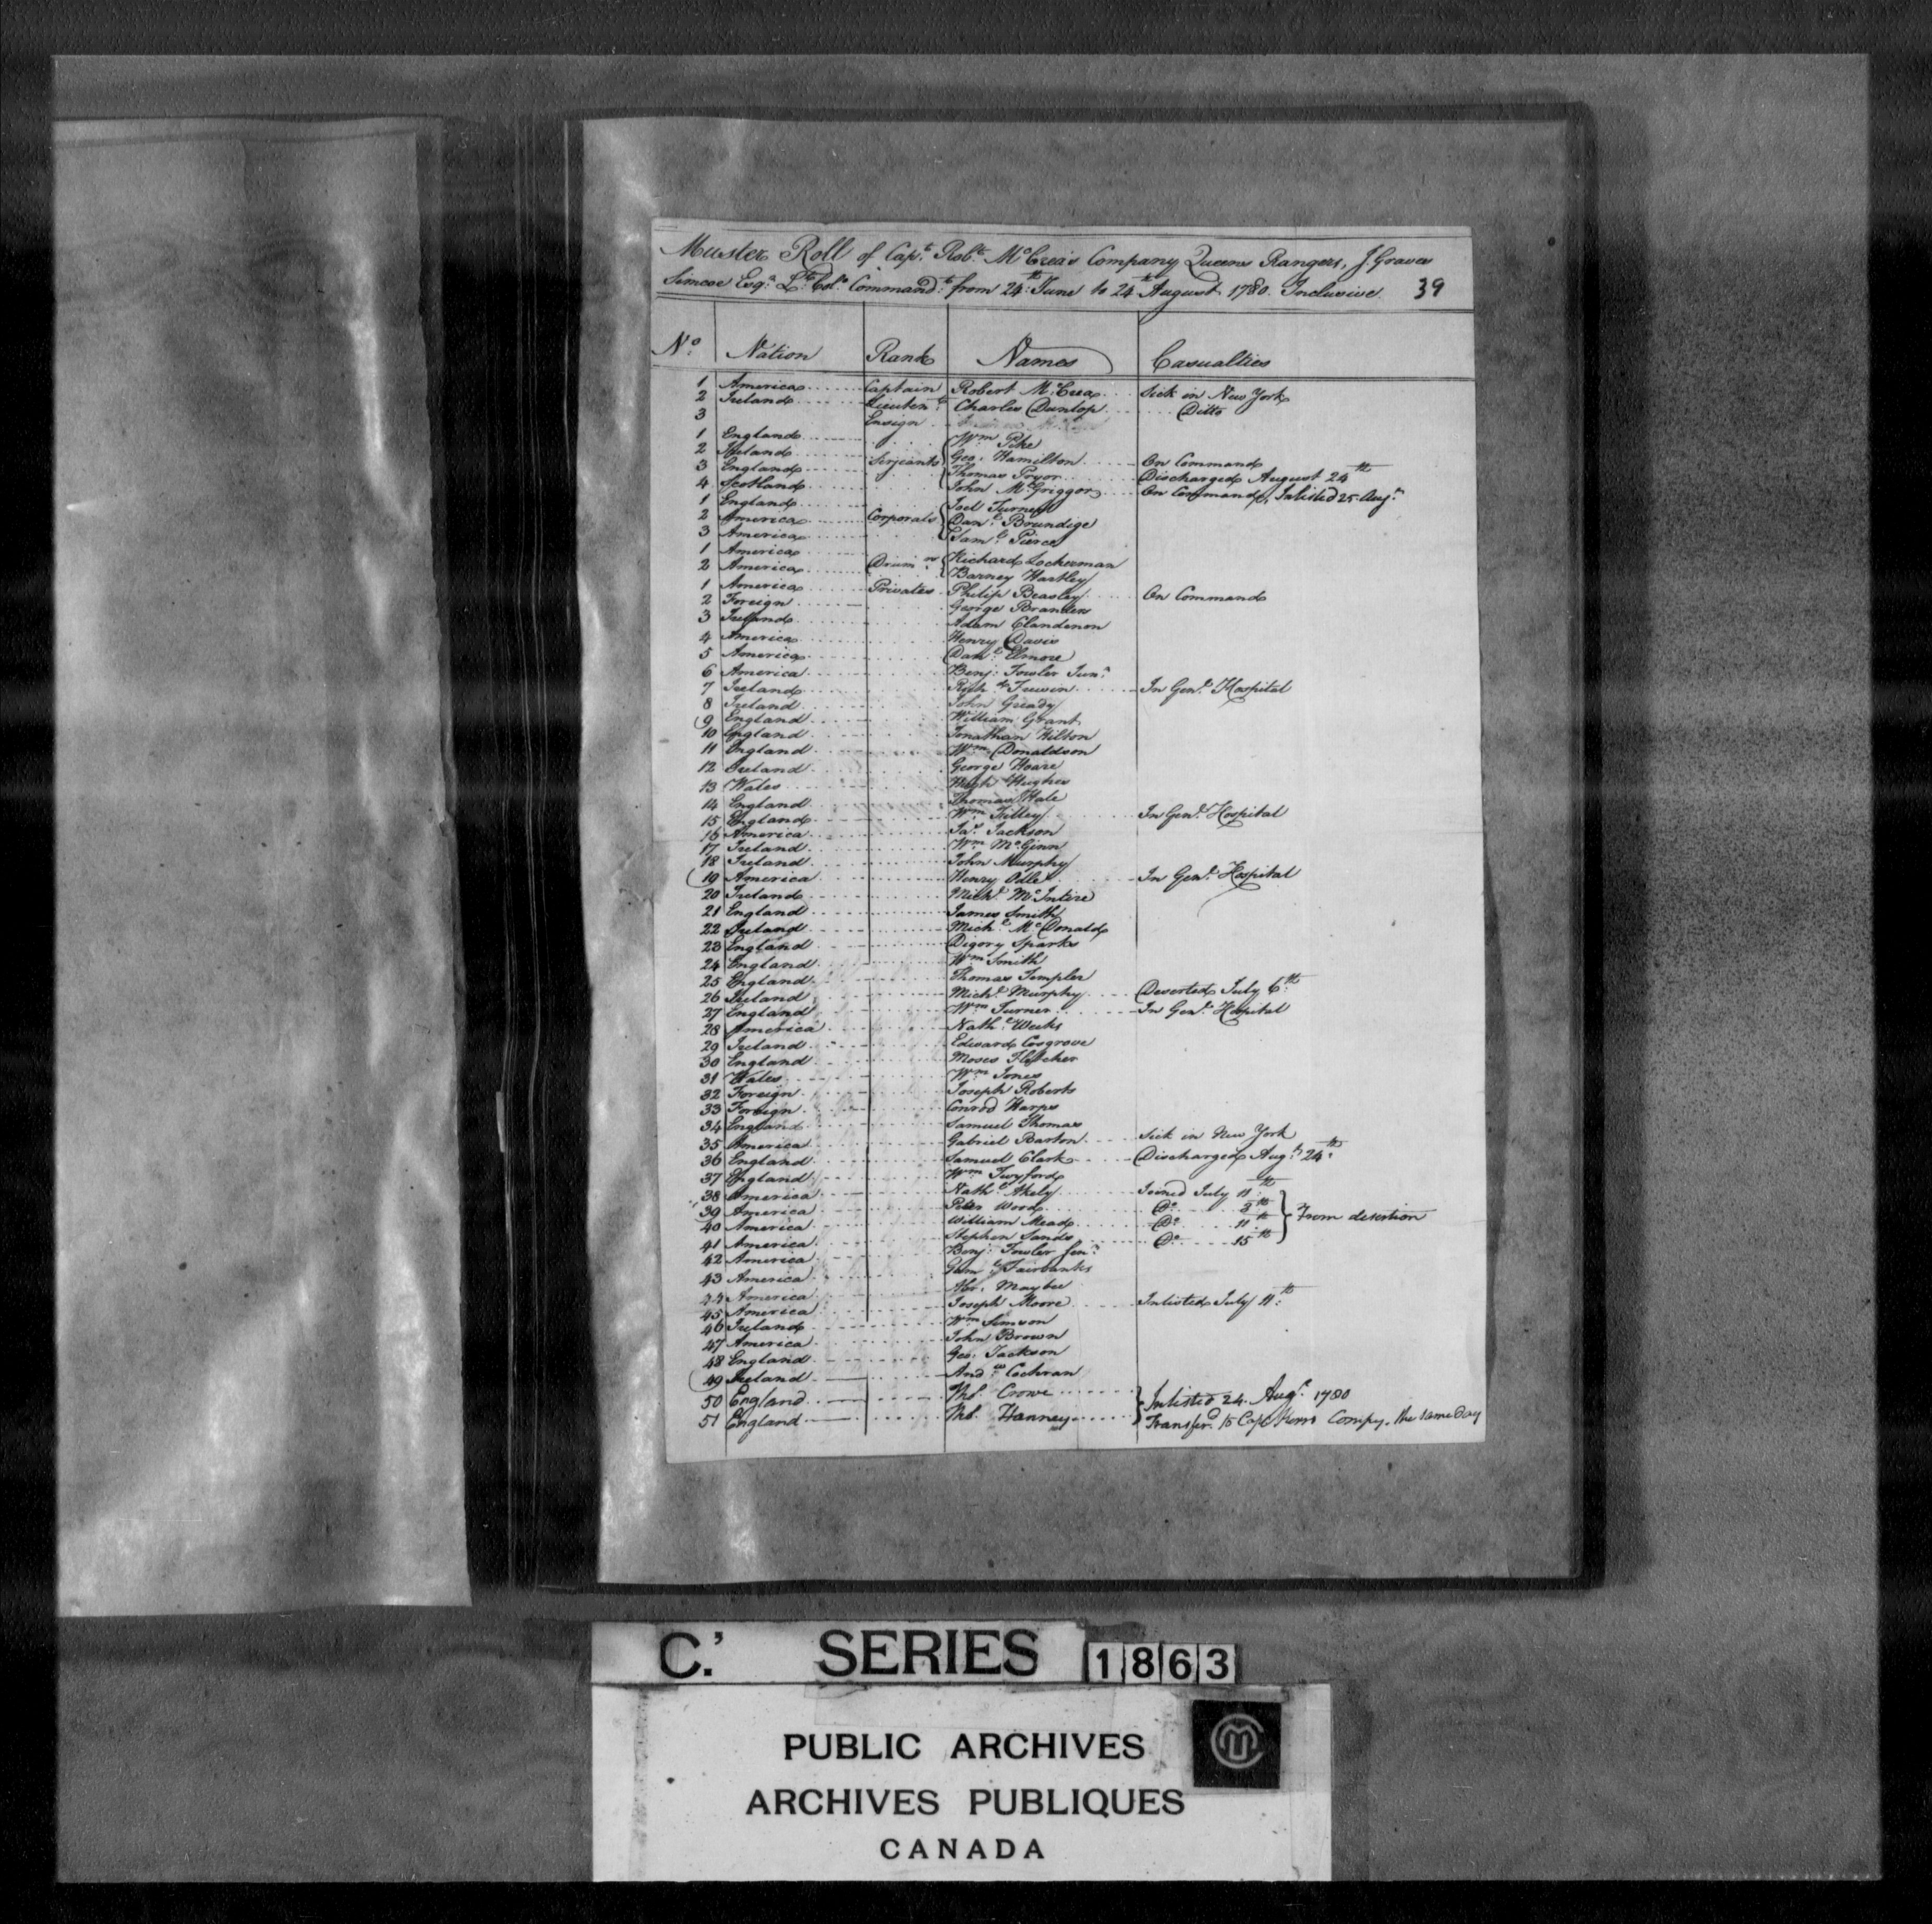 Muster Roll of Capt. Robt. McCrea's Company Queens Rangers, J. Graves
Simcoe Esqr. Lt. Col. Commandt. from 24th June to 24th August 1780. Inclusive 39
No. Nation Rank Names Casualties
1 America Captain Robert McCrea Sick in New York
2 Ireland Lieutent. Charles Dunlop Ditto
3 Ensign
1 England Wm. Pike
2 Ireland Serjeants Geo. Hamilton On Command
3 England Thomas Pryor Discharged August 24th
4 Scotland John McGriggor On Command, Inlisted 25 Augt.
1 England Joel Turney
2 America Corporals Danl. Brundige
3 America Saml. Pierce
1 America Richard Lockerman
2 America Drumrs. Barney Hartley
1 America Privates Philip Beasley On Command
2 Foreign George Branden
3 Ireland Adam Clandenon
4 America Henry Davis
5 America Danl. Elmore
6 America Benj. Fowler Junr.
7 Ireland In Genl. Hospital
8 Ireland John Gready
9 England William Grant
10 England Jonathan Hilton
11 England Wm. Donaldson
12 Ireland George Hoare
13 Wales Hugh Hughes
14 England Thomas Hale
15 England Wm. In Genl. Hospital
16 America Jas. Jackson
17 Ireland Wm. McGinn
18 Ireland John Murphy
19 America Henry Odle In Genl. Hospital
20 Ireland Michl. McIntire
21 England James Smith
22 Ireland Michl. McDonald
23 England Digory Sparks
24 England Wm. Smith
25 England Thomas Templer
26 Ireland Michl. Murphy Deserted July 6th
27 England Wm. Turner In Genl. Hospital
28 America Nathl. Weeks
29 Ireland Edward Cosgrove
30 England Moses Fletcher
31 Wales Wm. Jones
32 Foreign Joseph Roberts
33 Foreign Conrod Harps
34 England Samuel Thomas
35 America Gabriel Barton Sick in New York
36 England Samuel Clark Discharged Augt. 24th
37 England Wm. Twyford
38 America Nathl. Akely Joined July 11th
39 America Peter Wood Do. 3th
40 America William Mead Do. 11th From desertion
41 America Stephen Sands Do. 15th
42 America Benj. Fowler Senr.
43 America Fairbanks
44 America Abr. Maybee
45 America Joseph Moore Inlisted July 11th
46 Ireland Wm. Simson
47 America John Brown
48 England Geo. Jackson
49 Ireland Andw. Cochran
50 England Thos. Crowe Inlisted 24 Augt. 1780
51 England Thos. Hanney Transferd. to Capt. Kerrs Compy. the same day
C.' SERIES 1863
PUBLIC ARCHIVES
ARCHIVES PUBLIQUES
CANADA